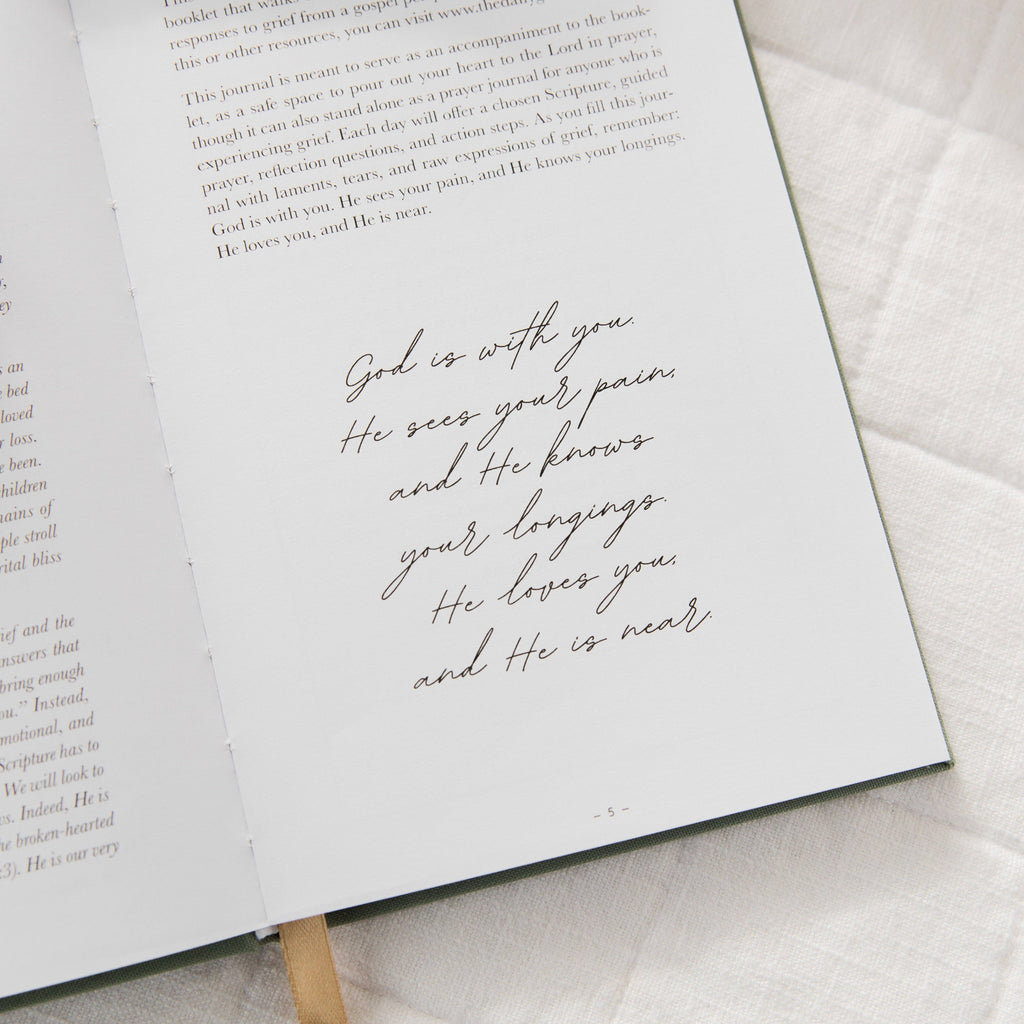 s an
bed
loved
r loss.
e been.
children
ains of
ple stroll
rital bliss
ief and the
answers that
bring enough
ou.” Instead,
motional, and
Scripture has to
We will look to
vs. Indeed, He is
he broken-hearted
:3). He is our very
booklet that walks
responses to grief from a gospel
this or other resources, you can visit
This journal is meant to serve as an accompaniment to the book-
let, as a safe space to pour out your heart to the Lord in prayer,
though it can also stand alone as a prayer journal for anyone who is
experiencing grief. Each day will offer a chosen Scripture, guided
prayer, reflection questions, and action steps. As you fill this jour-
nal with laments, tears, and raw expressions of grief, remember:
God is with you. He sees your pain, and He knows your longings.
He loves you, and He is near.
God is with you.
He sees your pain,
and He knows
your longings.
He loves you,
and He is near.
– 5 –